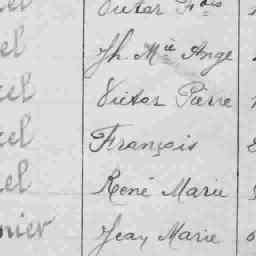 Victor Fois
el Jh. Mie Ange
el Victor Pierre
el François
el René Marie
nier Jean Marie